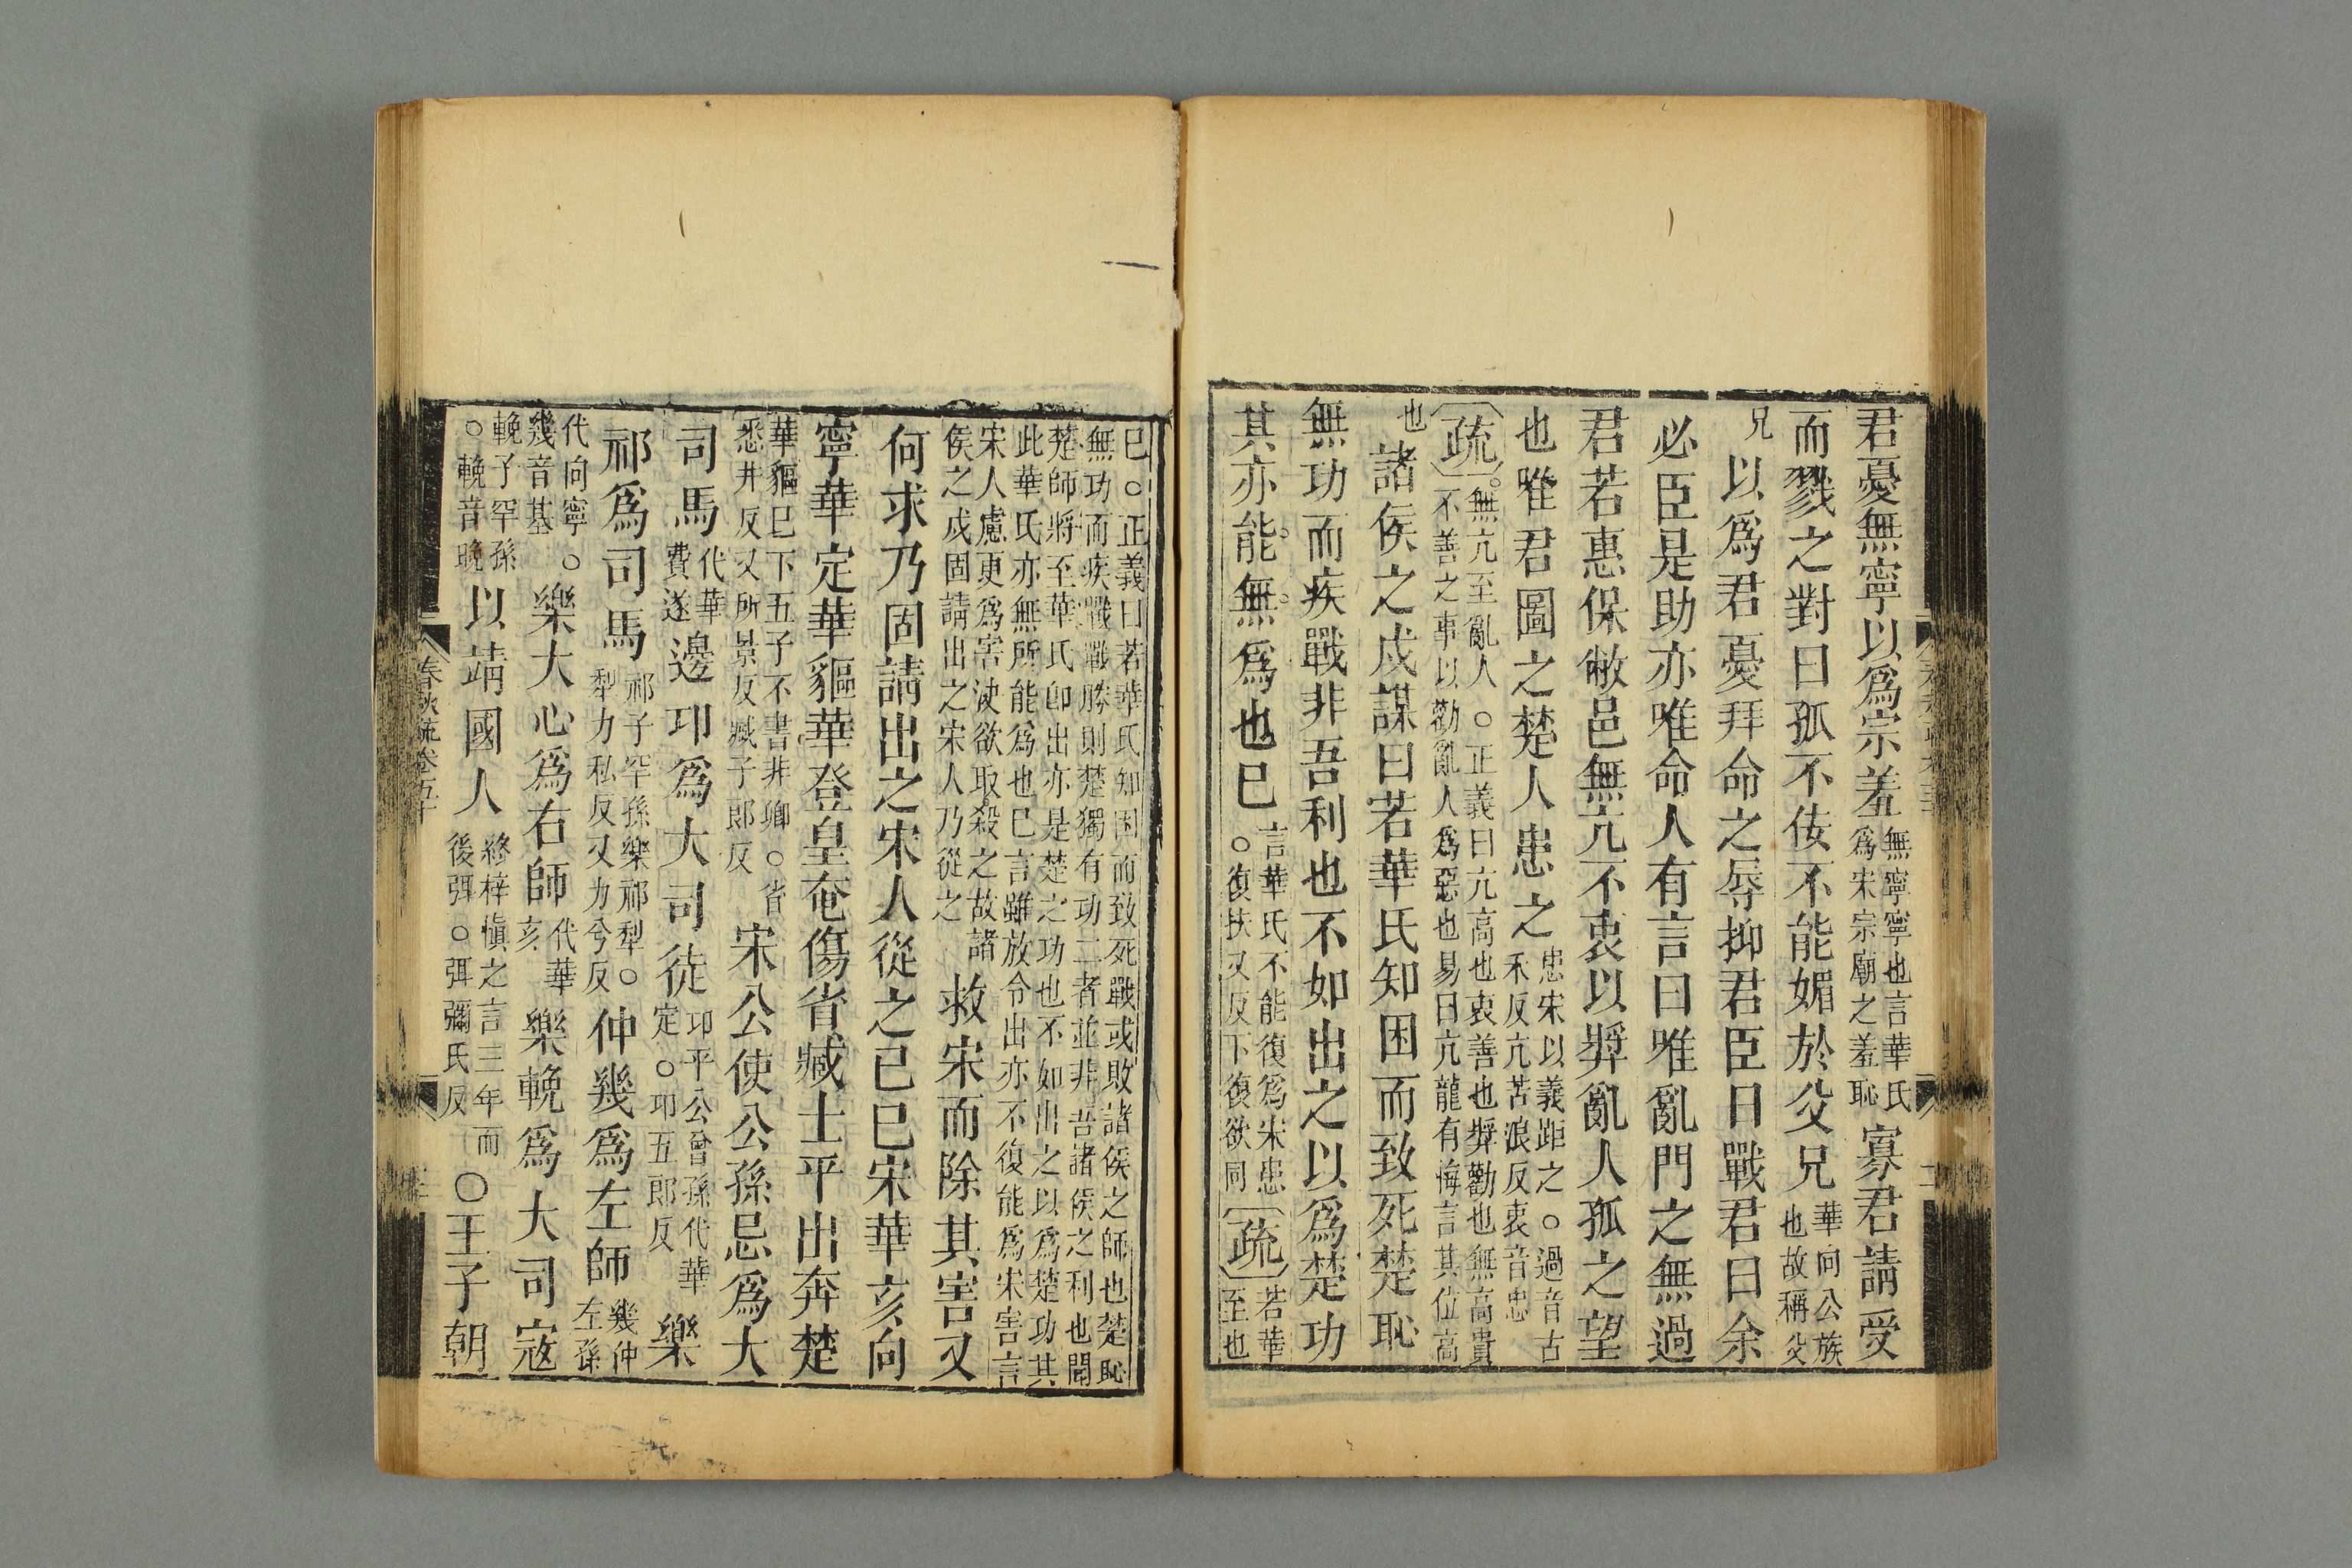 君憂無寧以爲宗羞無寧寧也言華氏爲宋宗廟之羞恥寡君請受
而戮之對曰孤不佞不能媚於父兄華向公族也故稱父
兄以爲君憂拜命之辱抑君臣日戰君曰余
必臣是助亦唯命人有言曰唯亂門之無過
君若惠保敝邑無亢不衷以奬亂人孤之望
也唯君圖之楚人患之患宋以義距之○過音古禾反亢苦浪反衷音忠
疏無亢至亂人○正義曰亢高也衷善也奬勸也無高貴不善之事以勸亂人爲惡也易曰亢龍有悔言其位高
也諸侯之戍謀曰若華氏知困而致死楚恥
無功而疾戰非吾利也不如出之以爲楚功
其亦能無爲也已言華氏不能復爲宋患○復扶又反下復欲同疏若華至也
已○正義曰若華氏知困而致死戰或敗諸侯之師也楚恥無功而疾戰戰勝則楚獨有功二者並非吾諸侯之利也聞
楚師將至華氏卽出亦是楚之功也不如出之以爲楚功其此華氏亦無所能爲也已言雖放令出亦不復能爲宋害言
宋人慮更爲害決欲取殺之故諸侯之戍固請出之宋人乃從之救宋而除其害又
何求乃固請出之宋人從之己巳宋華亥向
寧華定華貙華登皇奄傷省臧士平出奔楚
華貙已下五子不書非卿○省悉井反又所景反臧子郎反宋公使公孫忌爲大
司馬代華費遂邊卬爲大司徒卬平公曾孫代華定○卬五郎反樂
祁爲司馬祁子罕孫樂祁犁○犁力私反又力兮反仲幾爲左師幾仲左孫
代向寧○幾音基樂大心爲右師代華亥樂輓爲大司寇
輓子罕孫○輓音晚以靖國人終梓愼之言三年而後弭○弭彌氏反○王子朝
春秋疏卷五十